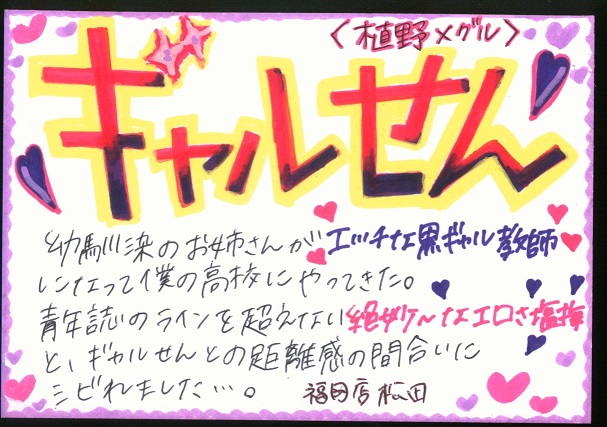 〈植野メグル〉
ギャルせん
幼馴染のお姉さんがエッチな黒ギャル教師
になって僕の高校にやってきた。
青年誌のラインを超えない絶妙〜なエロさ塩梅
と、ギャルせんとの距離感の間合いに
シビれました…。
福岡店 松田